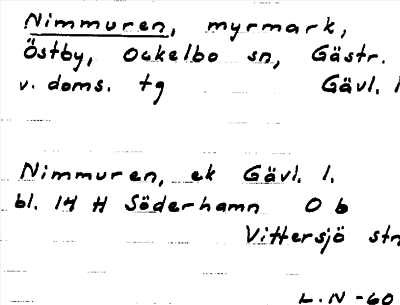 Nimmuren, myrmark,
Östby, Ockelbo sn, Gästr.
v. doms. tg Gävl. l
Nimmuren, ek Gävl. l.
bl. 14 H Söderhamn O b
Vittersjö stn
L.N -60